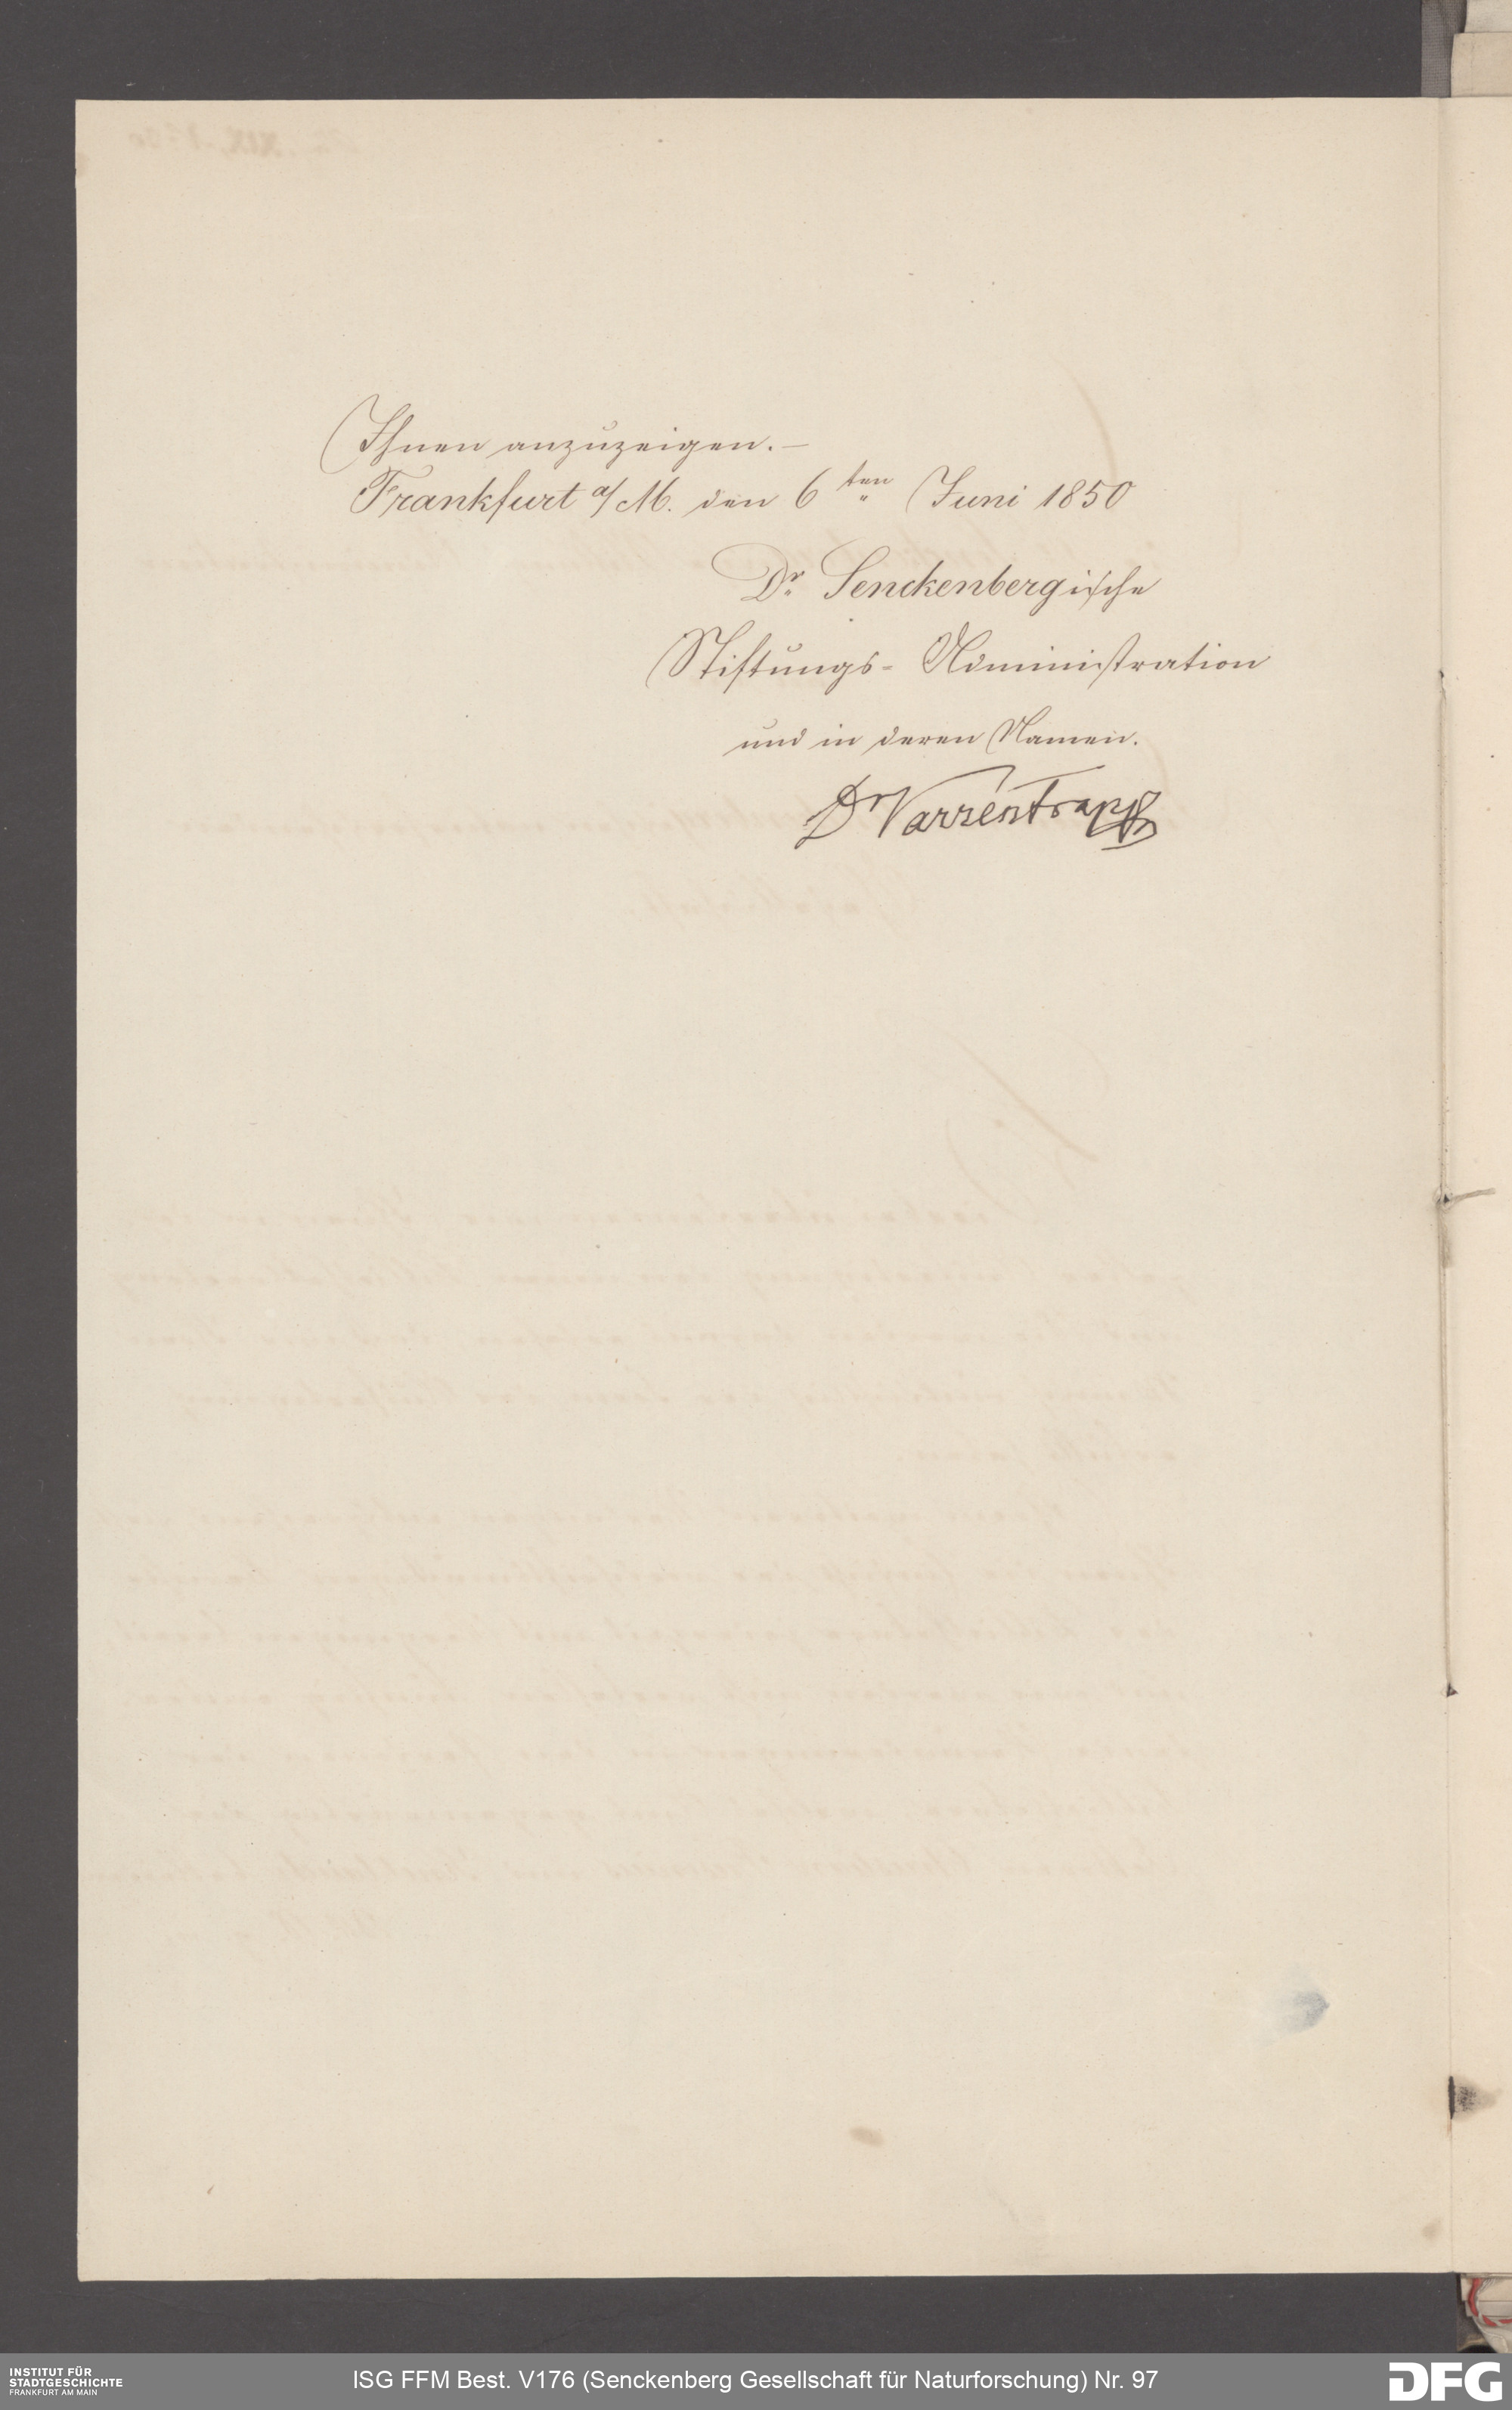 Ihnen anzuzeigen. –
Frankfurt a/M. den 6ten Juni 1850
Dr. Senckenbergische
Stiftungs- Administration
und in deren Namen.
Dr Varrentrapp
INSTITUT FÜR
STADTGESCHICHTE
FRANKFURT AM MAIN
ISG FFM Best. V176 (Senckenberg Gesellschaft für Naturforschung) Nr. 97
DFG